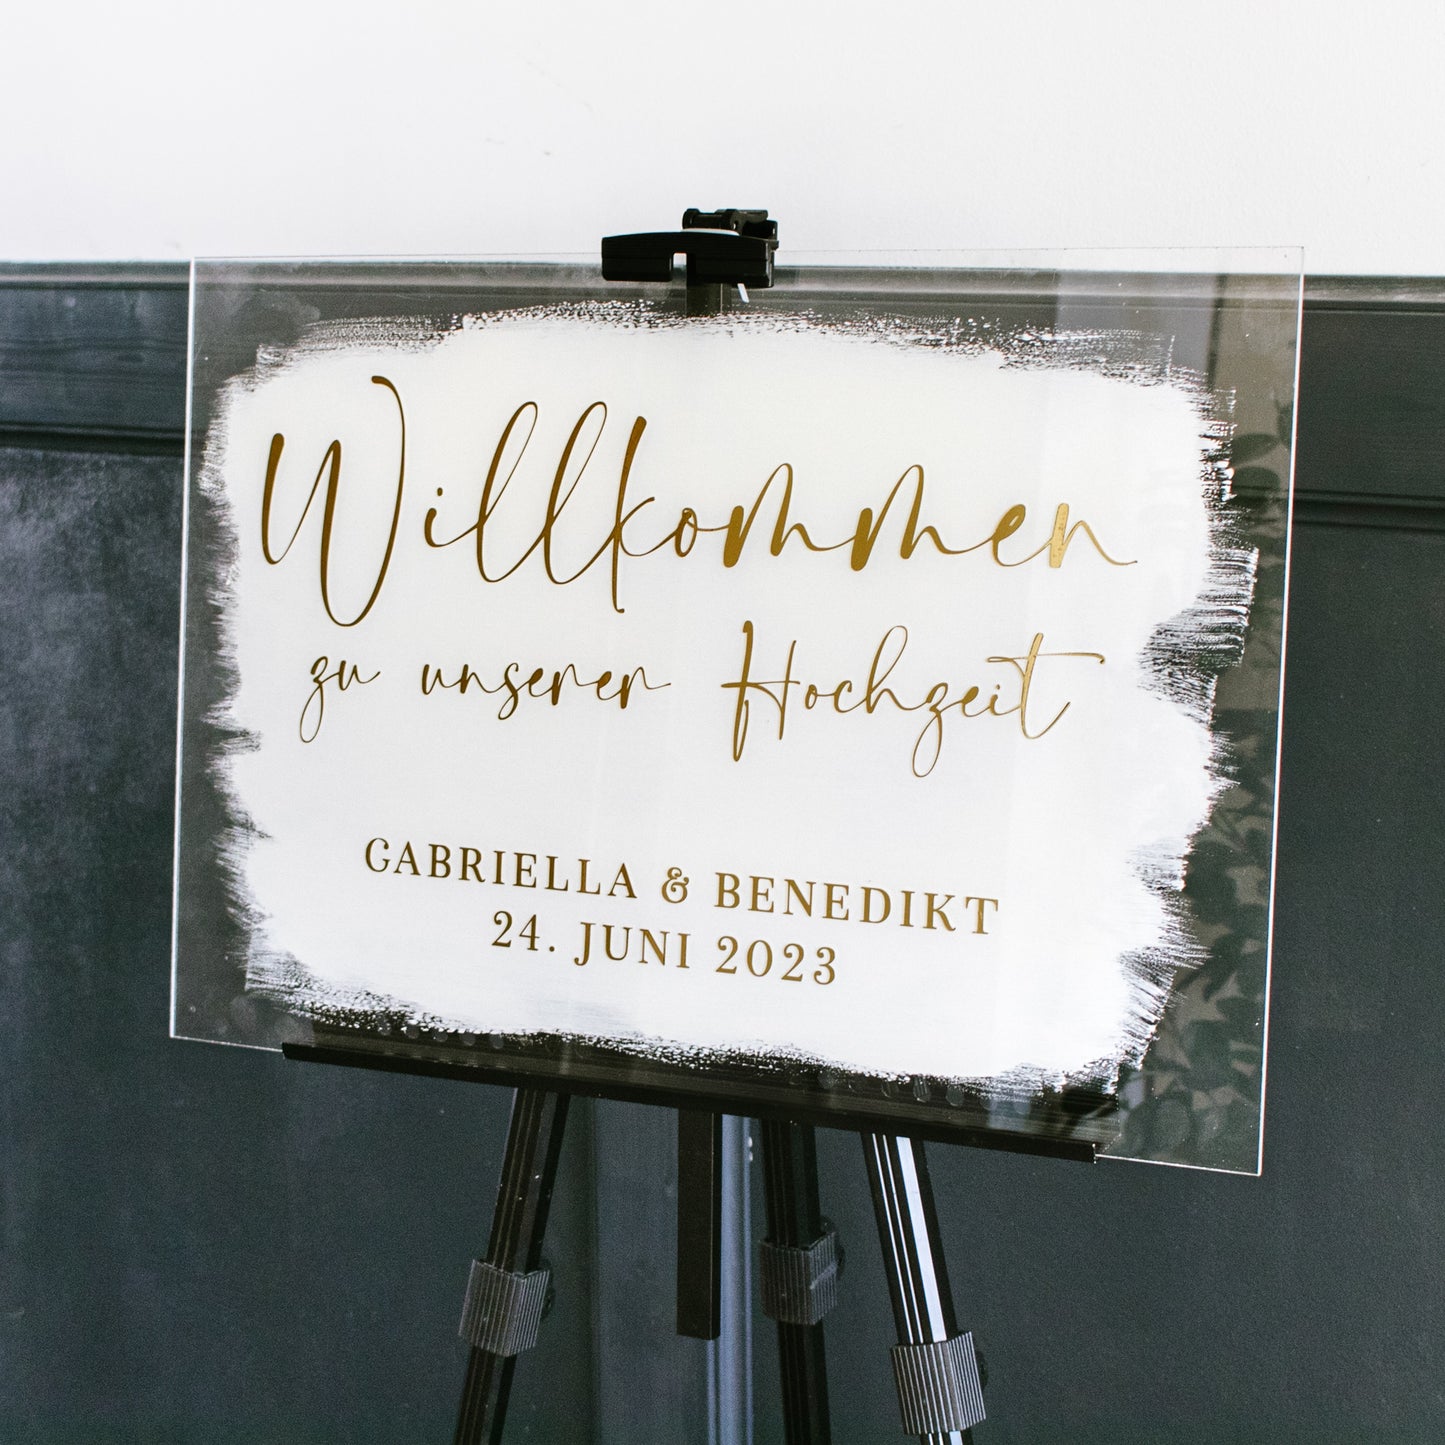 Willkommen
zu unserer Hochzeit
GABRIELLA & BENEDIKT
24. JUNI 2023